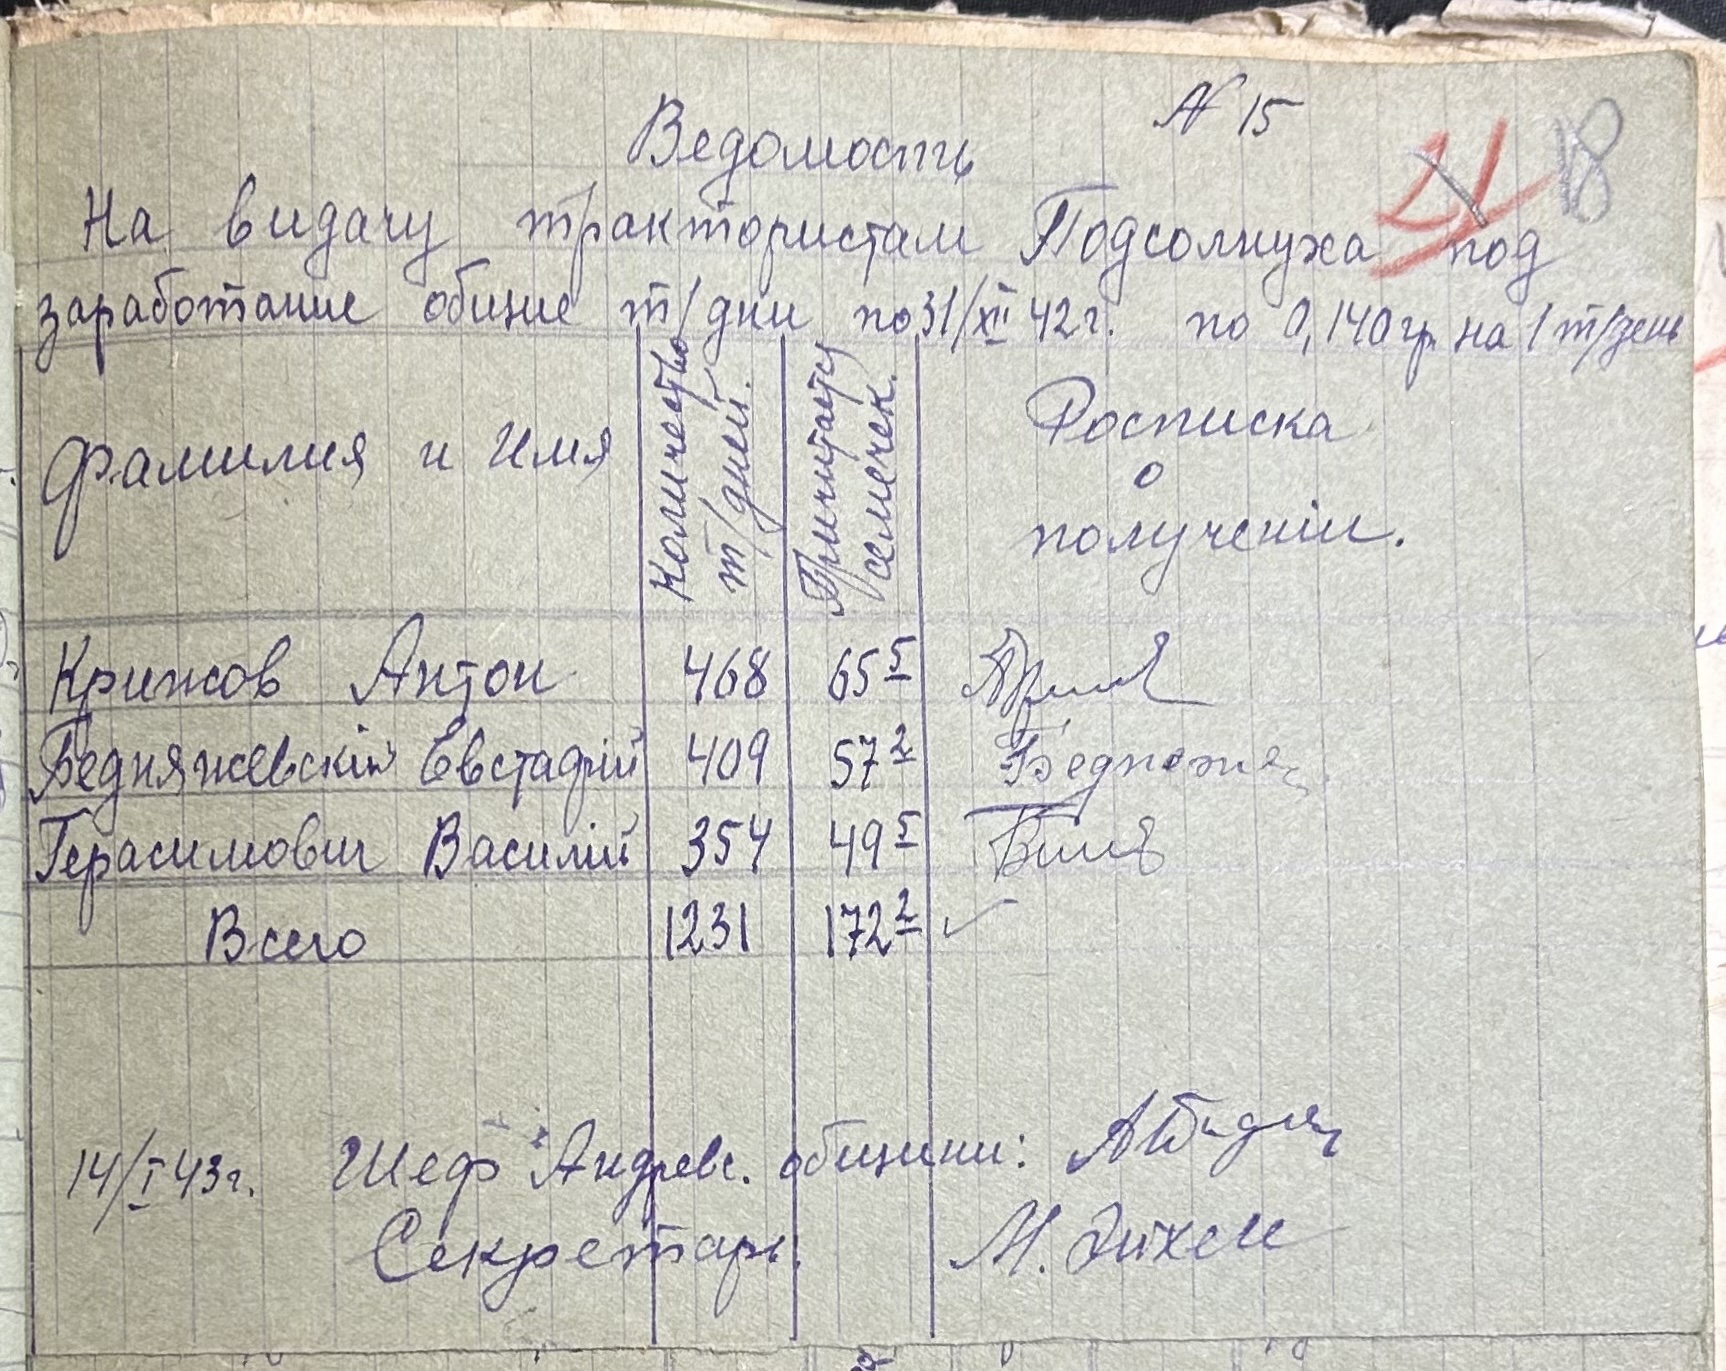 № 15
21 18
Ведомость
На видачу трактористам Подсолнуха под
заработание общие т/дни по 31/XII 42г. по 0,140гр. на 1 т/день
Фамилия и Имя
Количество т/дней.
Причитаетс семечек.
Росписка
о
полученіи.
Крижов Антон 468 65 5
Бедняжевскій Евстафій 409 57 2
Герасимович Василій 354 49 5
Всего 1231 172 2
14/I 43г. Шеф Андревс. общини:
Секретарь: М.